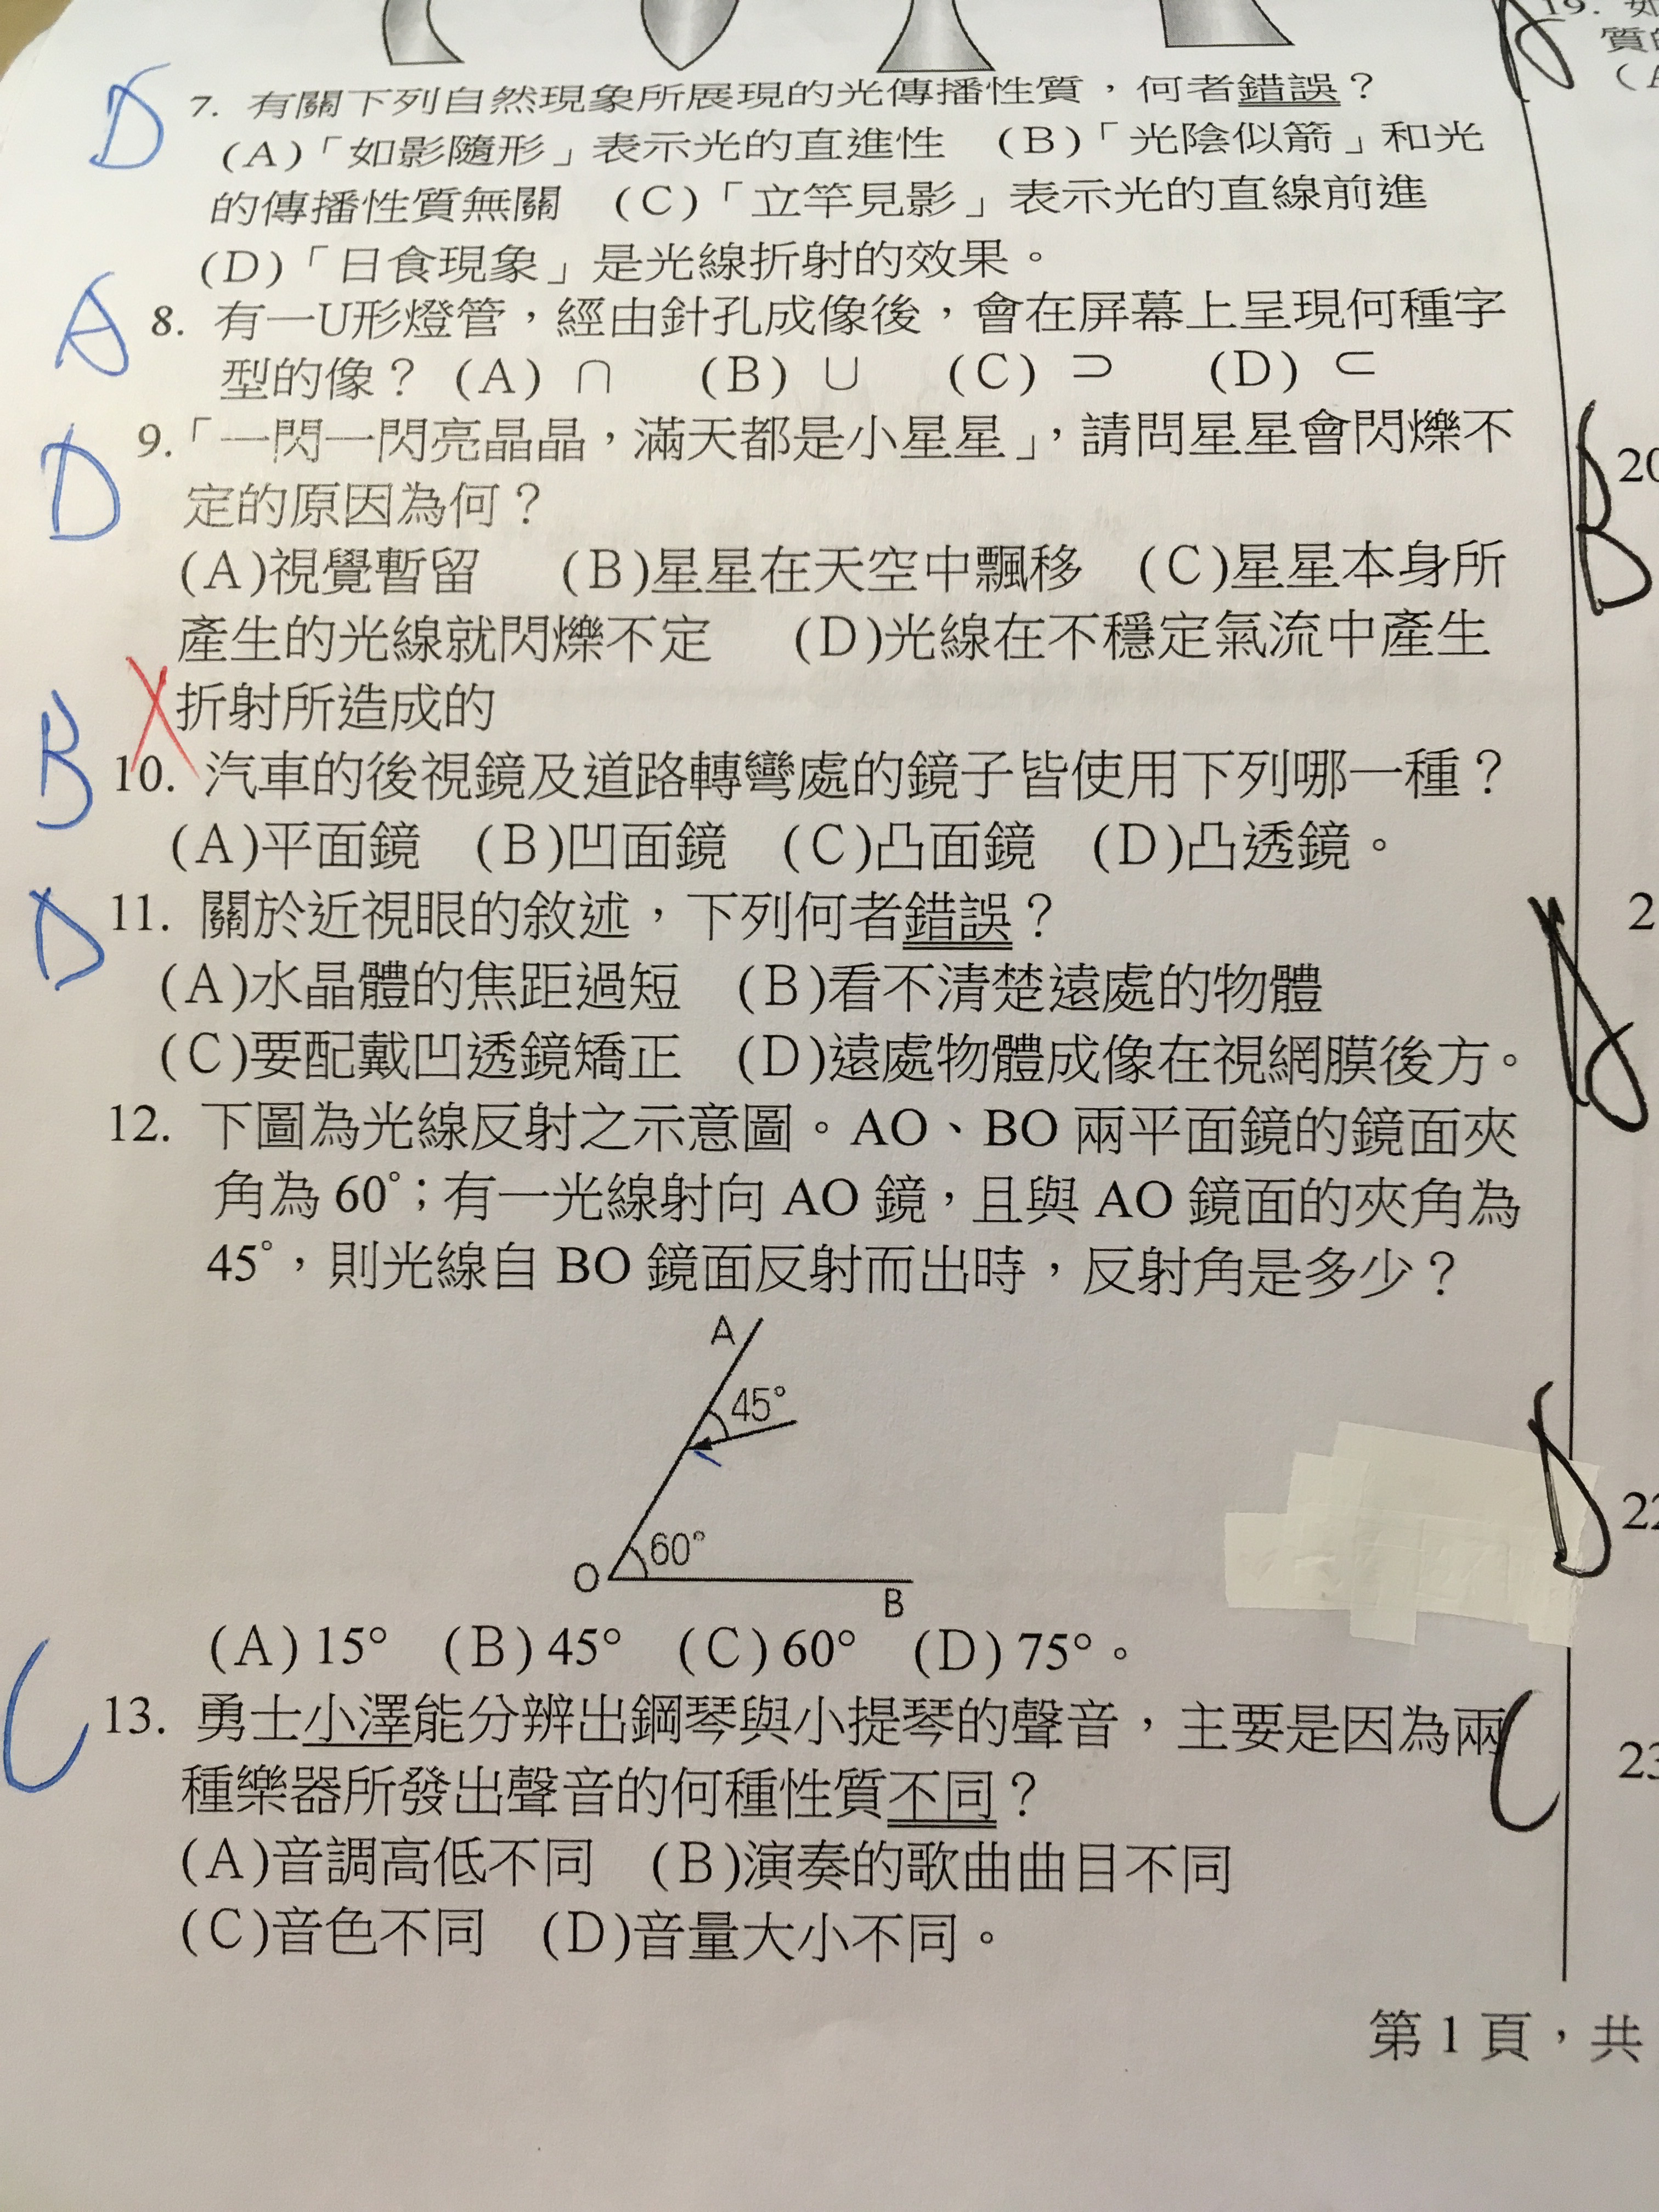 D 7. 有關下列自然現象所展現的光傳播性質，何者錯誤？
(A)「如影隨形」表示光的直進性 (B)「光陰似箭」和光
的傳播性質無關 (C)「立竿見影」表示光的直線前進
(D)「日食現象」是光線折射的效果。
A 8. 有一U形燈管，經由針孔成像後，會在屏幕上呈現何種字
型的像？ (A) ∩ (B) ∪ (C) ⊃ (D) ⊂
D 9.「一閃一閃亮晶晶，滿天都是小星星」，請問星星會閃爍不
定的原因為何？
(A)視覺暫留 (B)星星在天空中飄移 (C)星星本身所
產生的光線就閃爍不定 (D)光線在不穩定氣流中產生
折射所造成的
B 10. 汽車的後視鏡及道路轉彎處的鏡子皆使用下列哪一種？
(A)平面鏡 (B)凹面鏡 (C)凸面鏡 (D)凸透鏡。
D 11. 關於近視眼的敘述，下列何者錯誤？
(A)水晶體的焦距過短 (B)看不清楚遠處的物體
(C)要配戴凹透鏡矯正 (D)遠處物體成像在視網膜後方。
12. 下圖為光線反射之示意圖。AO、BO 兩平面鏡的鏡面夾
角為 60°；有一光線射向 AO 鏡，且與 AO 鏡面的夾角為
45°，則光線自 BO 鏡面反射而出時，反射角是多少？
A
45°
60°
O
B
(A) 15° (B) 45° (C) 60° (D) 75°。
C 13. 勇士小澤能分辨出鋼琴與小提琴的聲音，主要是因為兩
種樂器所發出聲音的何種性質不同？
(A)音調高低不同 (B)演奏的歌曲曲目不同
(C)音色不同 (D)音量大小不同。
第 1 頁，共
19.
質
(A
B 20
2
D 22
C 23